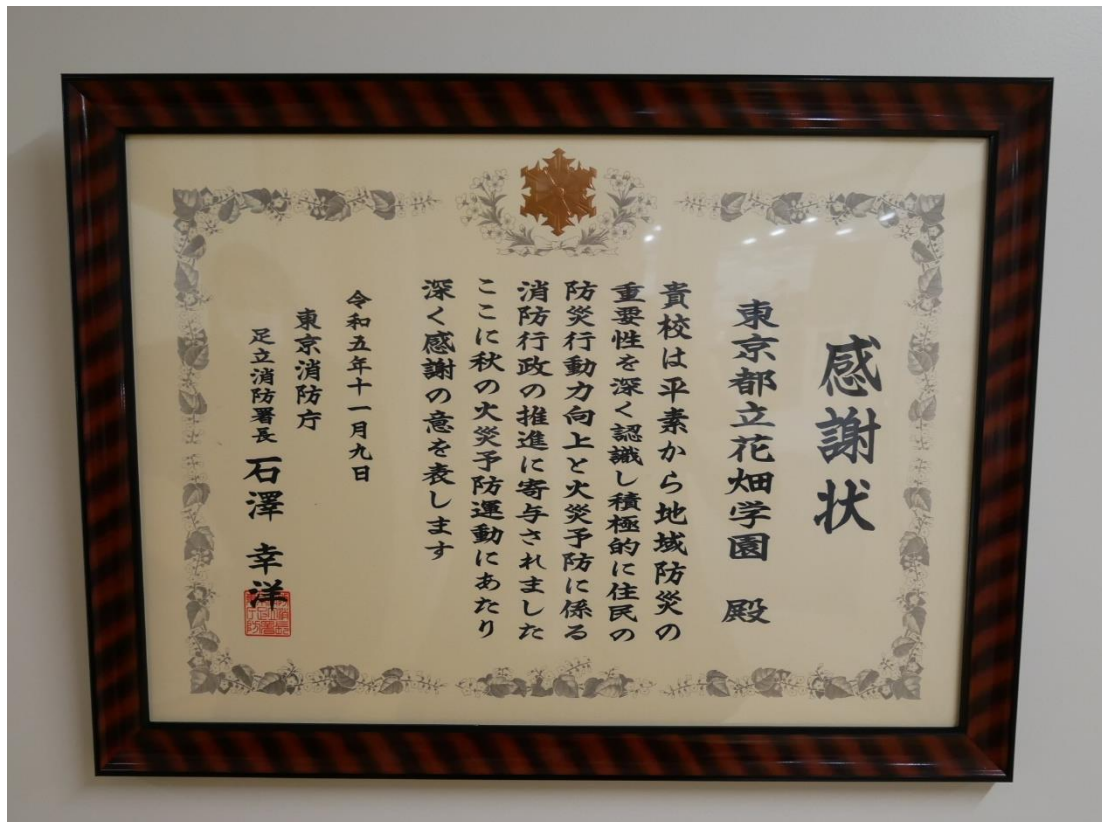 感謝状
東京都立花畑学園　殿
貴校は平素から地域防災の
重要性を深く認識し積極的に住民の
防災行動力向上と火災予防に係る
消防行政の推進に寄与されました
ここに秋の火災予防運動にあたり
深く感謝の意を表します
令和五年十一月九日
東京消防庁
足立消防署長　石澤　幸洋